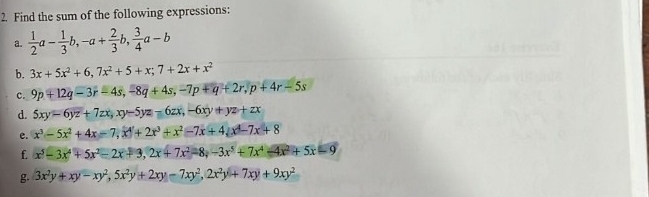 2. Find the sum of the following expressions:
a. 1/2 a - 1/3 b, -a + 2/3 b, 3/4 a - b
b. 3x + 5x² + 6, 7x² + 5 + x; 7 + 2x + x²
c. 9p + 12q - 3r - 4s, -8q + 4s, -7p + q + 2r, p + 4r - 5s
d. 5xy - 6yz + 7zx, xy - 5yz - 6zx, -6xy + yz + zx
e. x³ - 5x² + 4x - 7, x⁴ + 2x³ + x² - 7x + 4, x³ - 7x + 8
f. x⁵ - 3x⁴ + 5x² - 2x + 3, 2x + 7x² - 8, -3x⁵ + 7x⁴ - 4x² + 5x - 9
g. 3x²y + xy - xy², 5x²y + 2xy - 7xy², 2x²y + 7xy + 9xy²